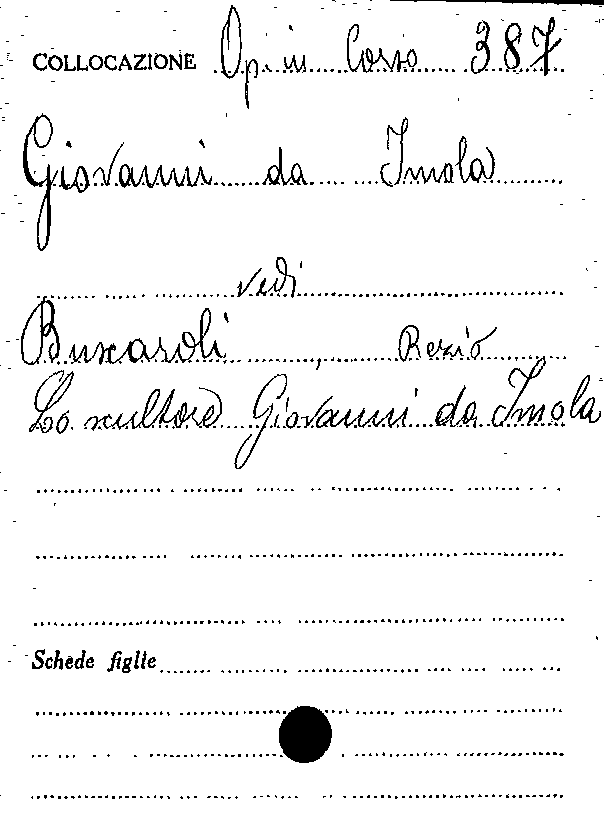 COLLOCAZIONE Op. in Corso 387
Giovanni da Imola
vedi
Buscaroli, Rezio
Lo scultore Giovanni da Imola
Schede figlie